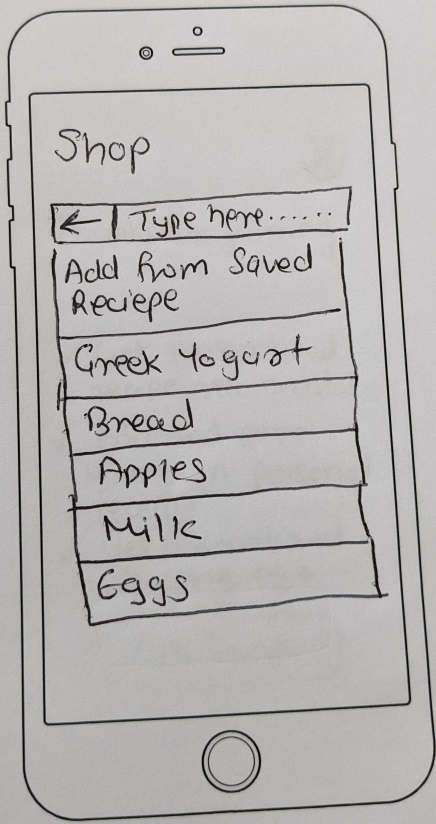 Shop
← | Type here......
Add from Saved
Reciepe
Greek Yogurt
Bread
Apples
Milk
Eggs